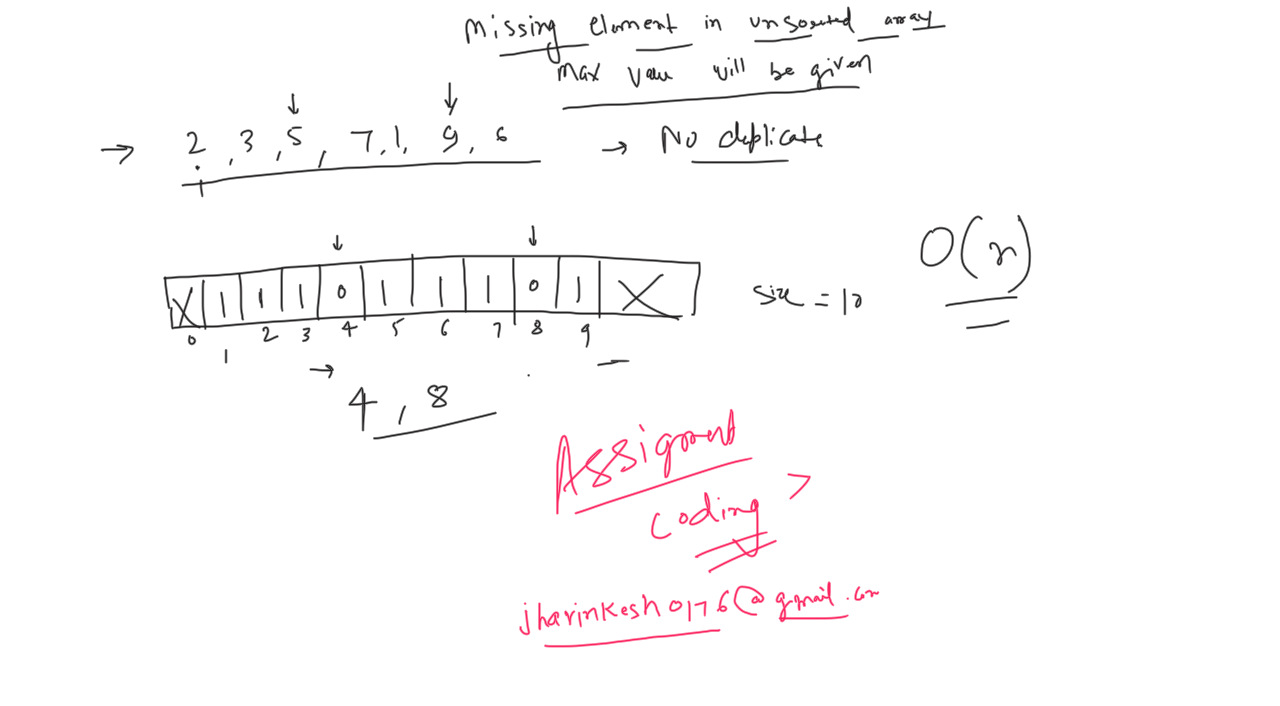 Missing element in unsorted array
Max value will be given
→ 2, 3, 5, 7, 1, 9, 6 → No duplicate
O(n)
X 1 1 1 0 1 1 1 0 1 X size = 10
0 1 2 3 4 5 6 7 8 9
→ 4, 8
Assignment
coding >
jharinkesh0176@gmail.com